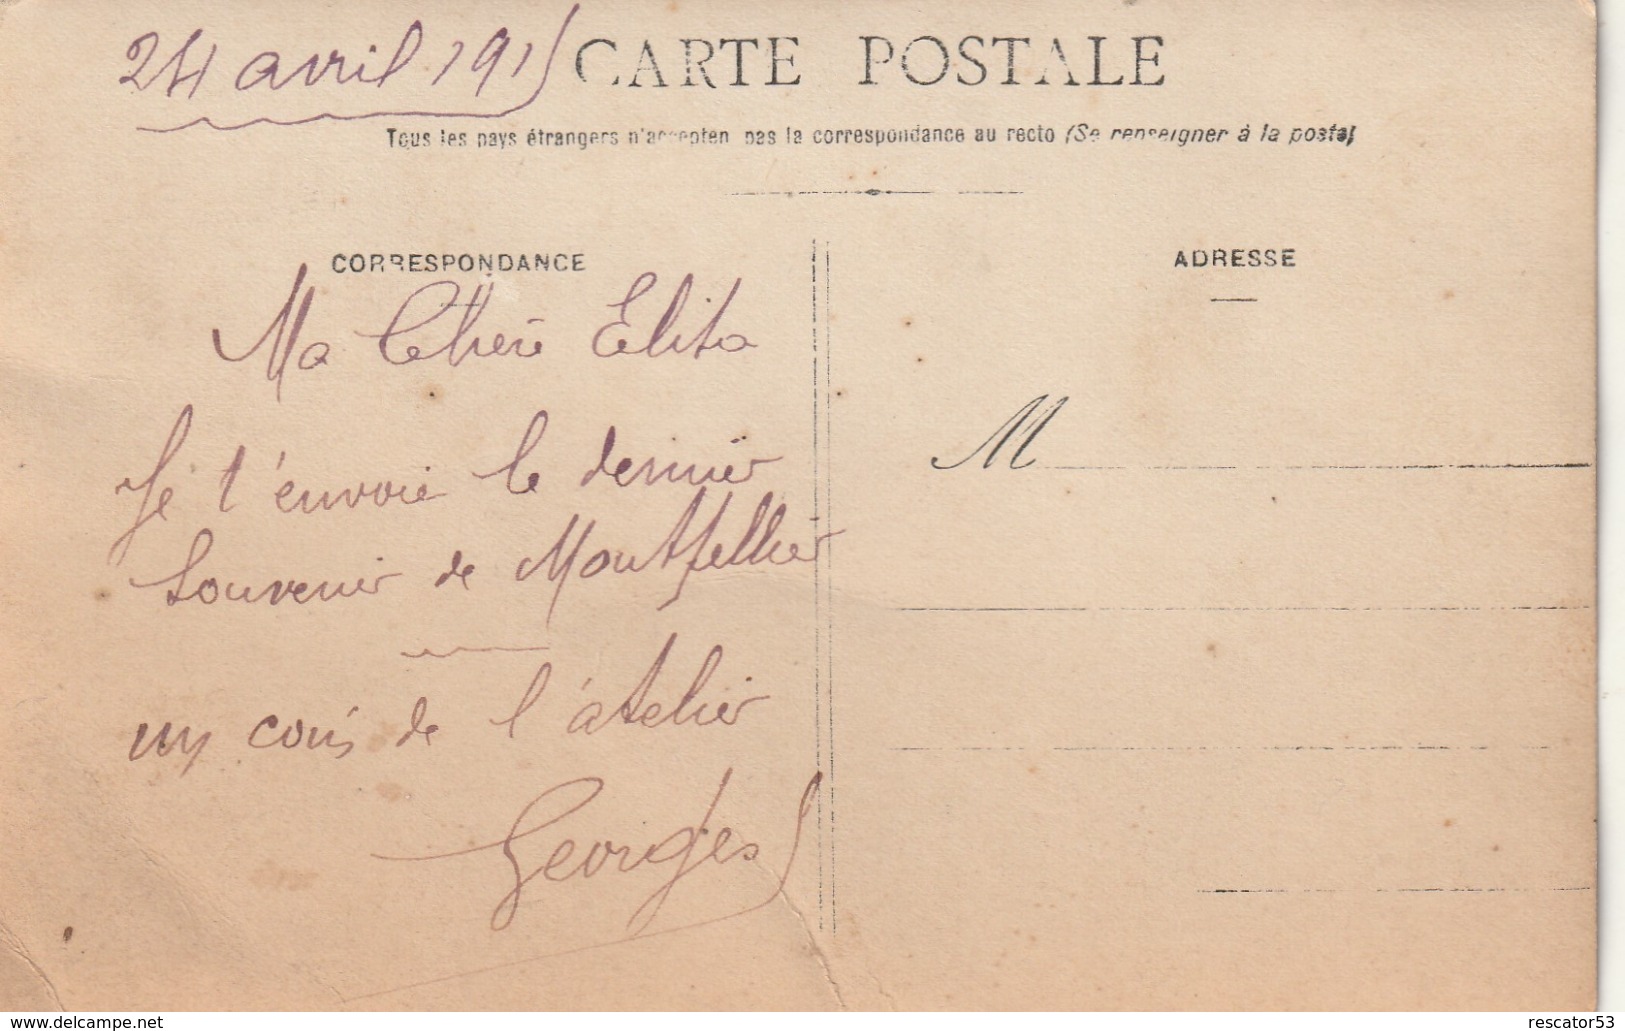 24 avril 1915
CARTE POSTALE
Tous les pays étrangers n'accepten pas la correspondance au recto (Se renseigner à la poste)
CORRESPONDANCE
Ma Chère Elita
Je t'envoie le dernier
souvenir de Montpellier
un coin de l'atelier
Georges
ADRESSE
M
delcampe.net
rescator53